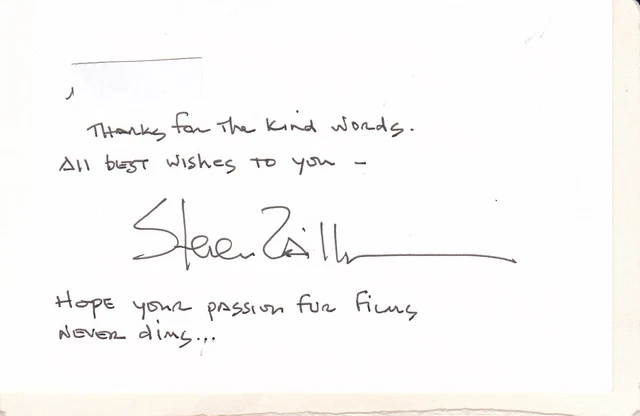 Thanks for the kind words.
All best wishes to you –
Steven Zaillian
Hope your passion for films
never dims...